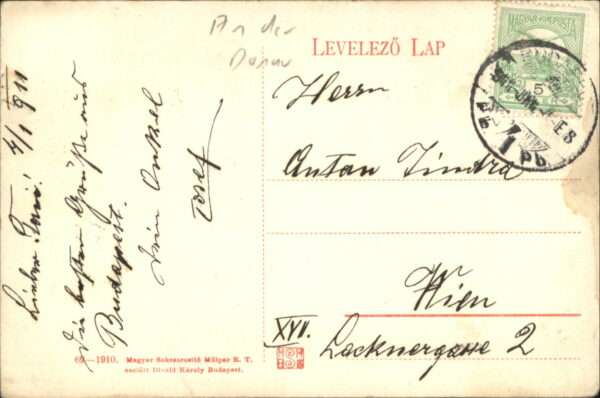 An der
Donau
LEVELEZŐ LAP
MAGYAR KIR. POSTA
Lieber Toni! 4/1 911
Die besten Grüße aus
Budapest.
Dein Onkel
Josef
Herrn
Antan Jindra
Wien
XVII.
Lacknergasse 2
69—1910. Magyar Sokszorosító Műipar R. T.
ezelőtt Divald Károly Budapest.